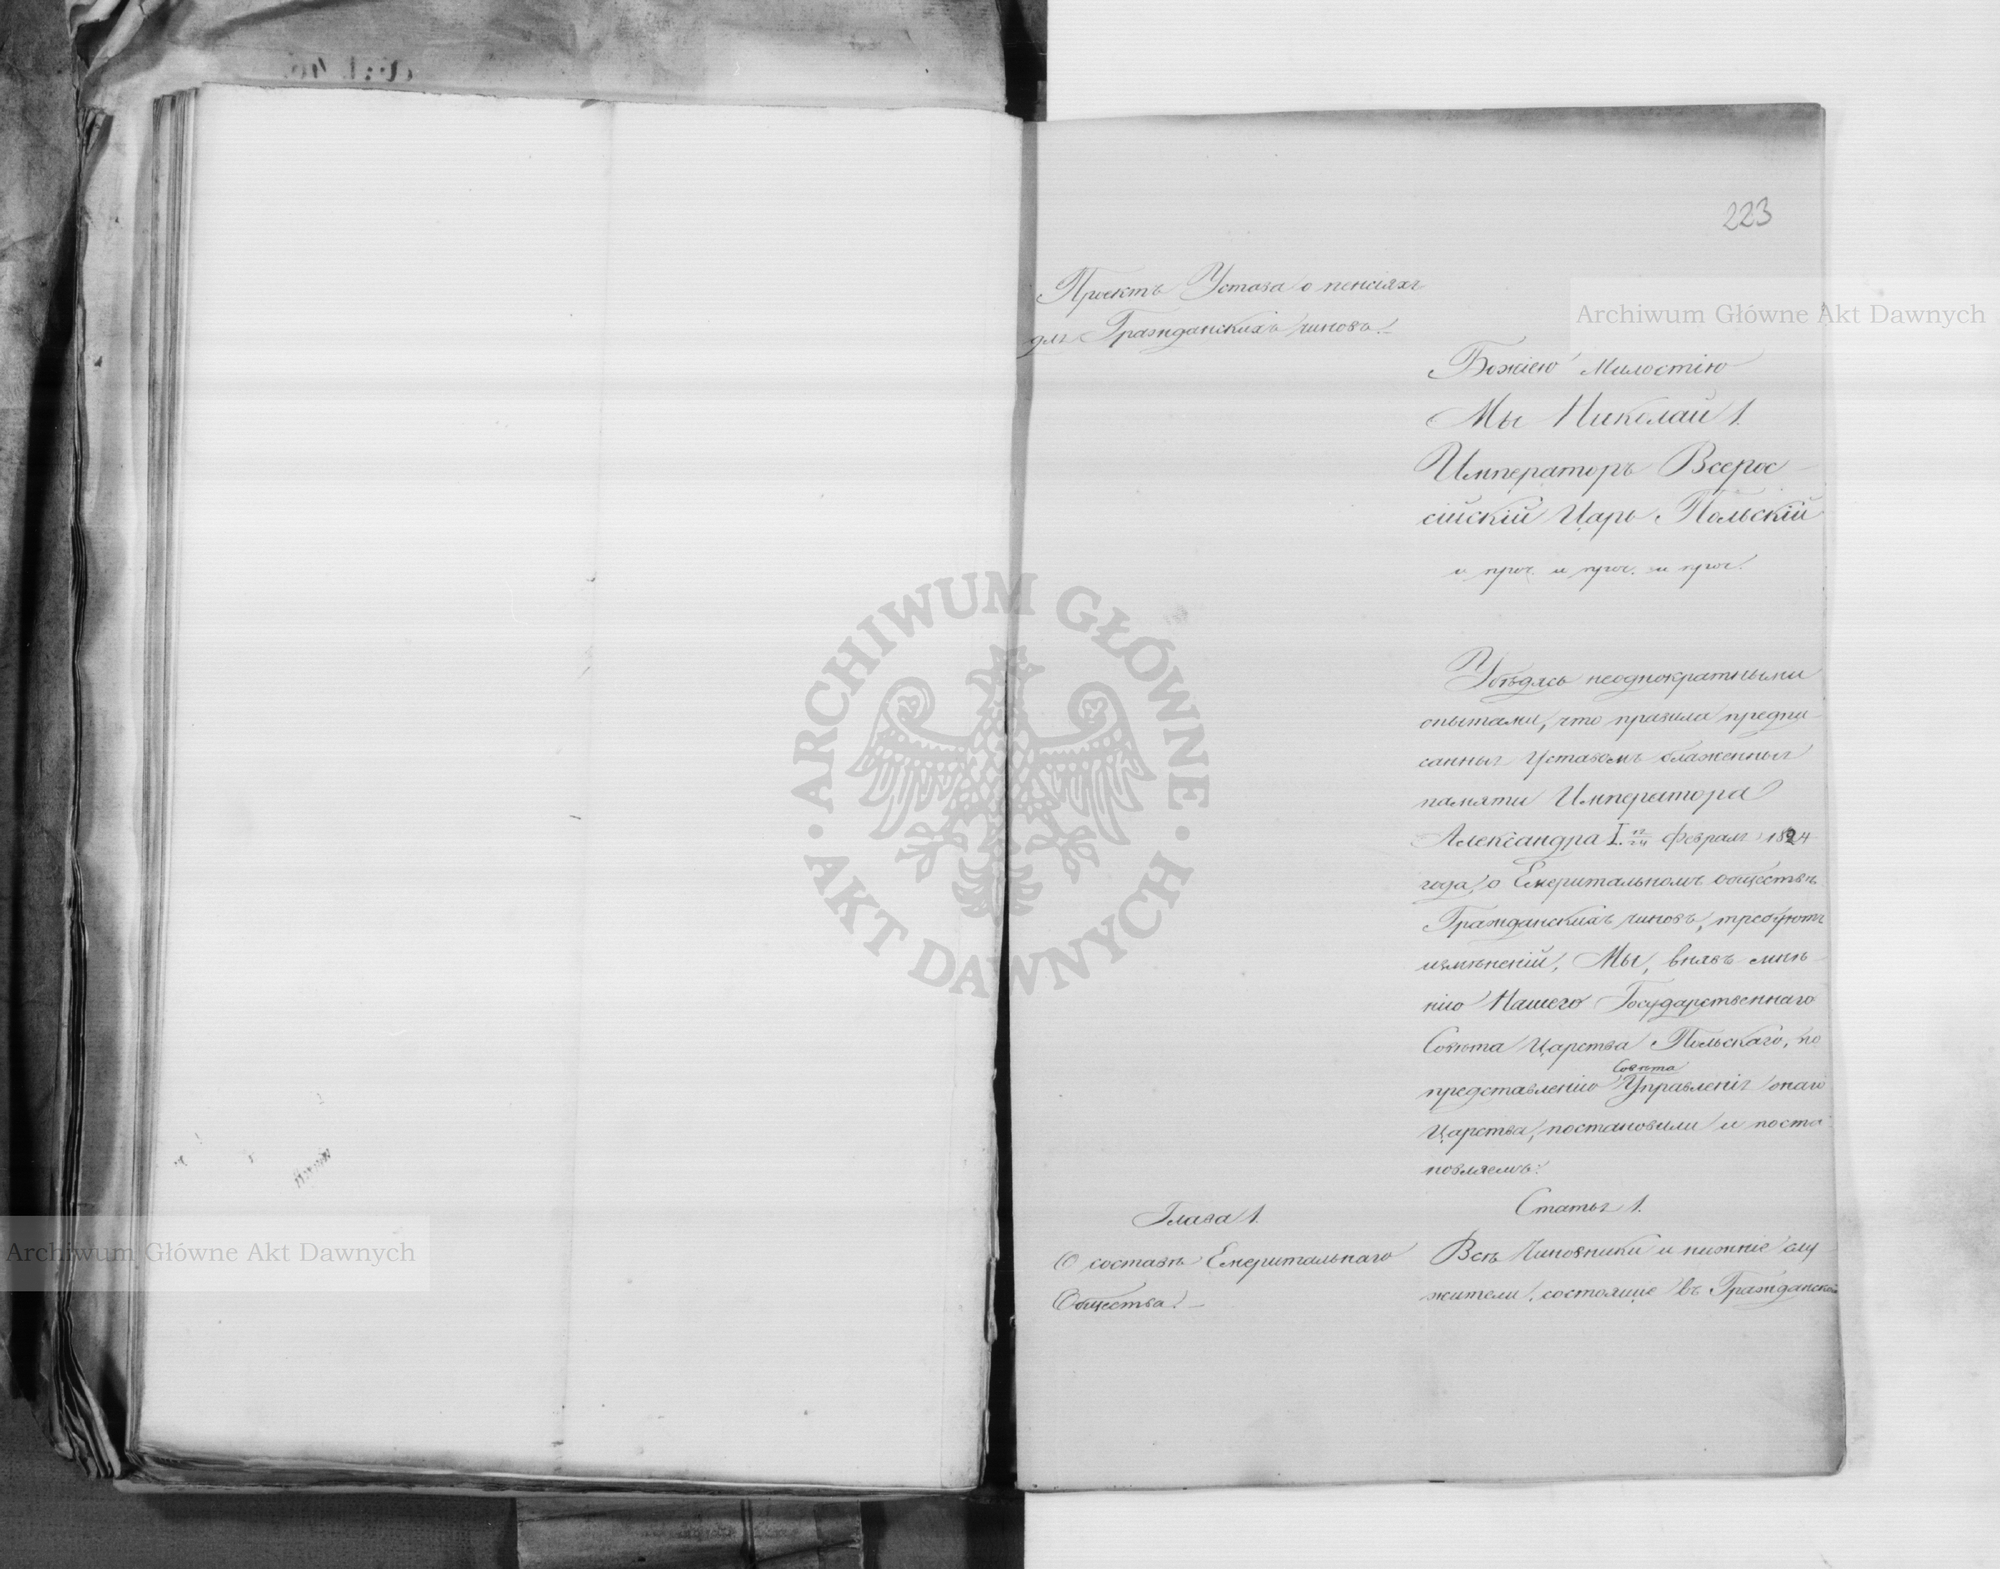 223
Проектъ Устава о пенсіяхъ
для Гражданскихъ чиновъ.
Божіею Милостію
Мы Николай 1.
Императоръ Всерос-
сійскій Царь Польскій
и проч. и проч. и проч.
Убѣдясь неоднократными
опытами, что правила предпи-
санныя Уставомъ блаженныя
памяти Императора
Александра I. 12/24 Февраля 1824
года, о Емеритальномъ обществѣ
Гражданскихъ чиновъ, требуютъ
измѣненій, Мы, внявъ мнѣ-
нію Нашего Государственнаго
Совѣта Царства Польскаго, по
представленію Совѣта Управленія онаго
Царства, постановили и поста-
новляемъ:
Глава 1.
О составѣ Емеритальнаго
Общества.
Статья 1.
Всѣ Чиновники и нижніе слу-
жители, состоящіе въ Гражданской
Archiwum Główne Akt Dawnych
Archiwum Główne Akt Dawnych
ARCHIWUM GŁÓWNE
AKT DAWNYCH